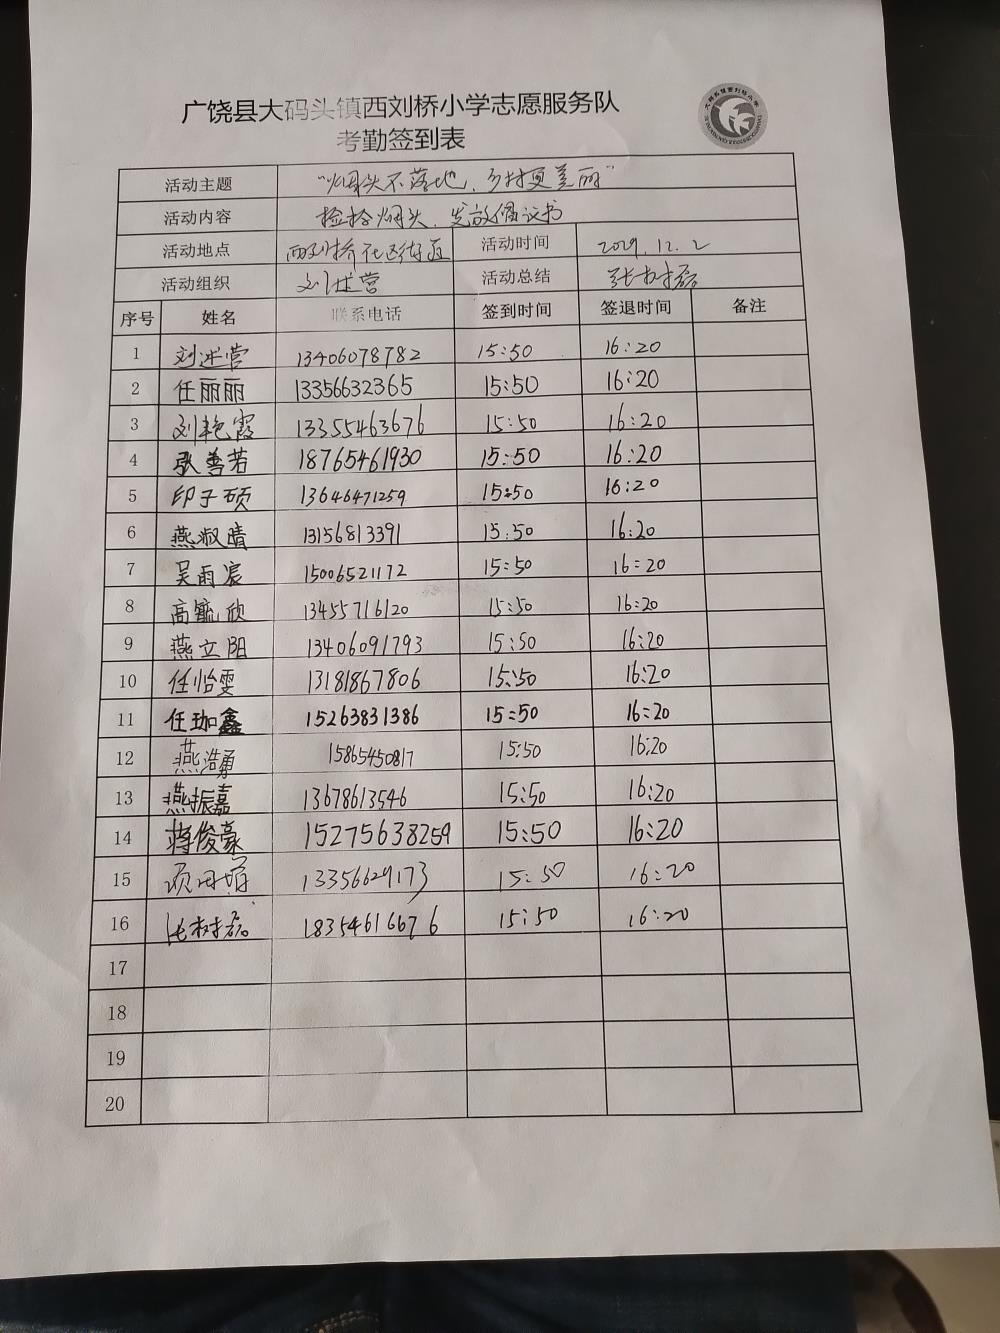 广饶县大码头镇西刘桥小学志愿服务队
考勤签到表
活动主题 "烟头不落地,乡村更美丽"
活动内容 捡拾烟头、发放倡议书
活动地点 西刘桥社区街道 活动时间 2029.12.2
活动组织 刘述营 活动总结 张树磊
序号 姓名 联系电话 签到时间 签退时间 备注
1 刘述营 13406078782 15:50 16:20
2 任丽丽 13356632365 15:50 16:20
3 刘艳霞 13355463676 15:50 16:20
4 张善若 18765461930 15:50 16:20
5 印子硕 13646471259 15:50 16:20
6 燕淑晴 13156813391 15:50 16:20
7 吴雨宸 15006521172 15:50 16:20
8 高毓欣 13455716120 15:50 16:20
9 燕立阳 13406091793 15:50 16:20
10 任怡雯 13181867806 15:50 16:20
11 任珈鑫 15263831386 15:50 16:20
12 燕浩勇 15865450817 15:50 16:20
13 燕振嘉 13678613546 15:50 16:20
14 蒋俊豪 15275638259 15:50 16:20
15 13356629173 15:50 16:20
16 张树磊 18354616676 15:50 16:20
17
18
19
20